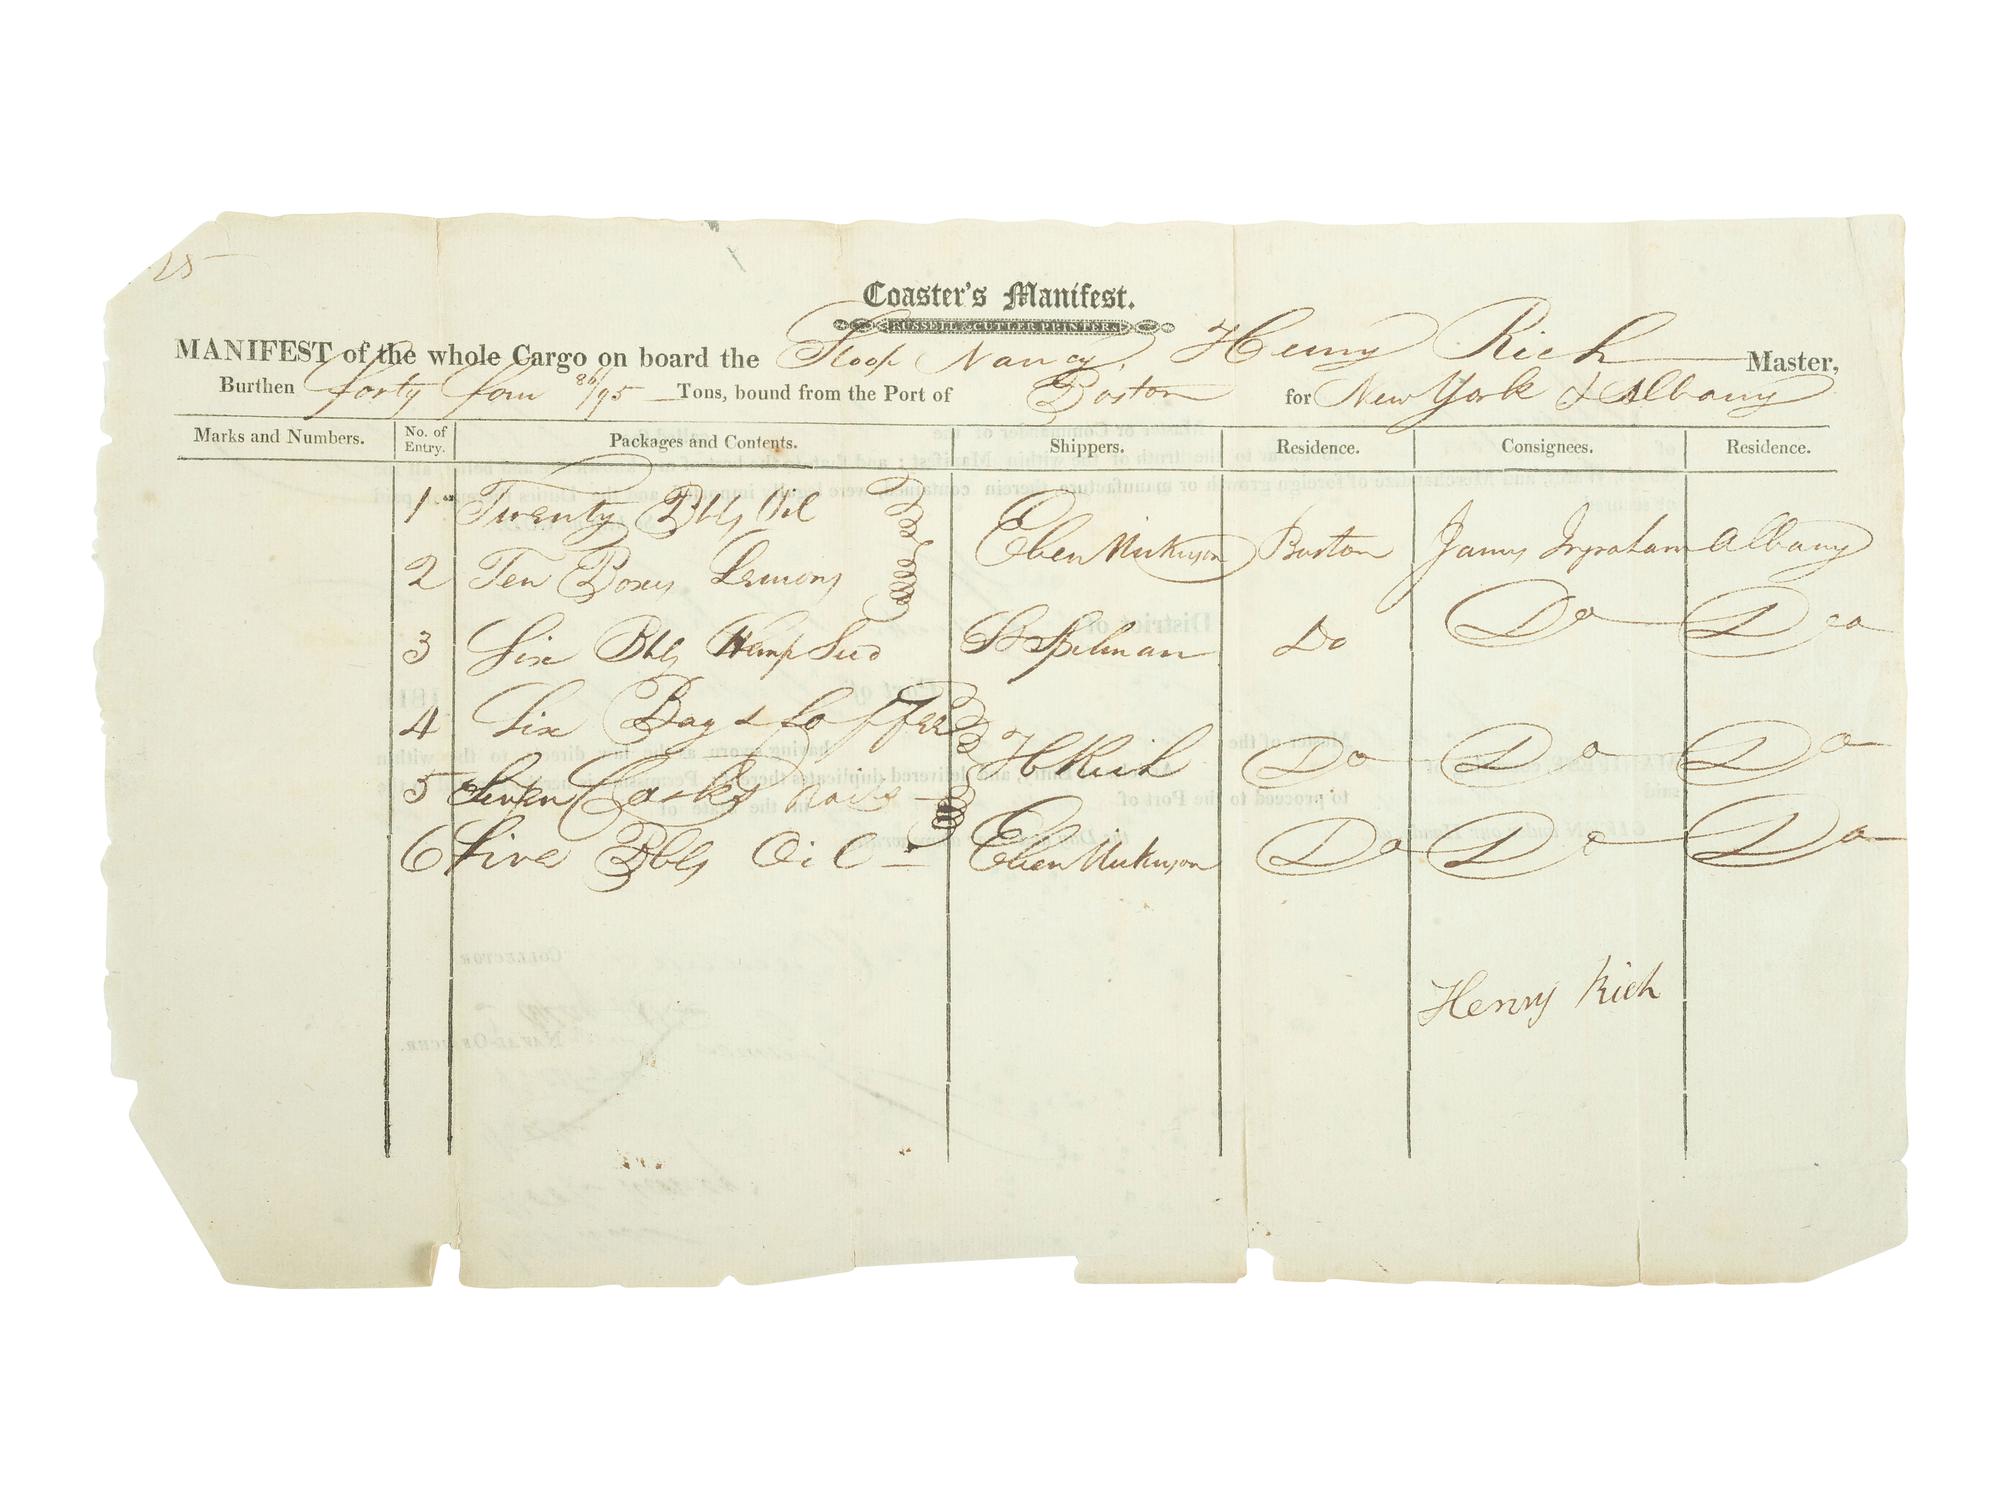 25
Coaster's Manifest.
RUSSELL & CUTLER PRINTERS.
MANIFEST of the whole Cargo on board the Sloop Nancy, Henry Rich Master,
Burthen forty four 86/95 Tons, bound from the Port of Boston for New York & Albany
Marks and Numbers. No. of Entry. Packages and Contents. Shippers. Residence. Consignees. Residence.
1 Twenty Bbls Oil
Eben Boston James Ingraham Albany
2 Ten Boxes Lemons
3 Six Bbls Hemp Seed Spelman Do Do Do
4 Six Bags Coffee
H Rich Do Do Do
5 Seven Casks Nails
6 Five Bbls Oil Eben Do Do Do
Henry Rich